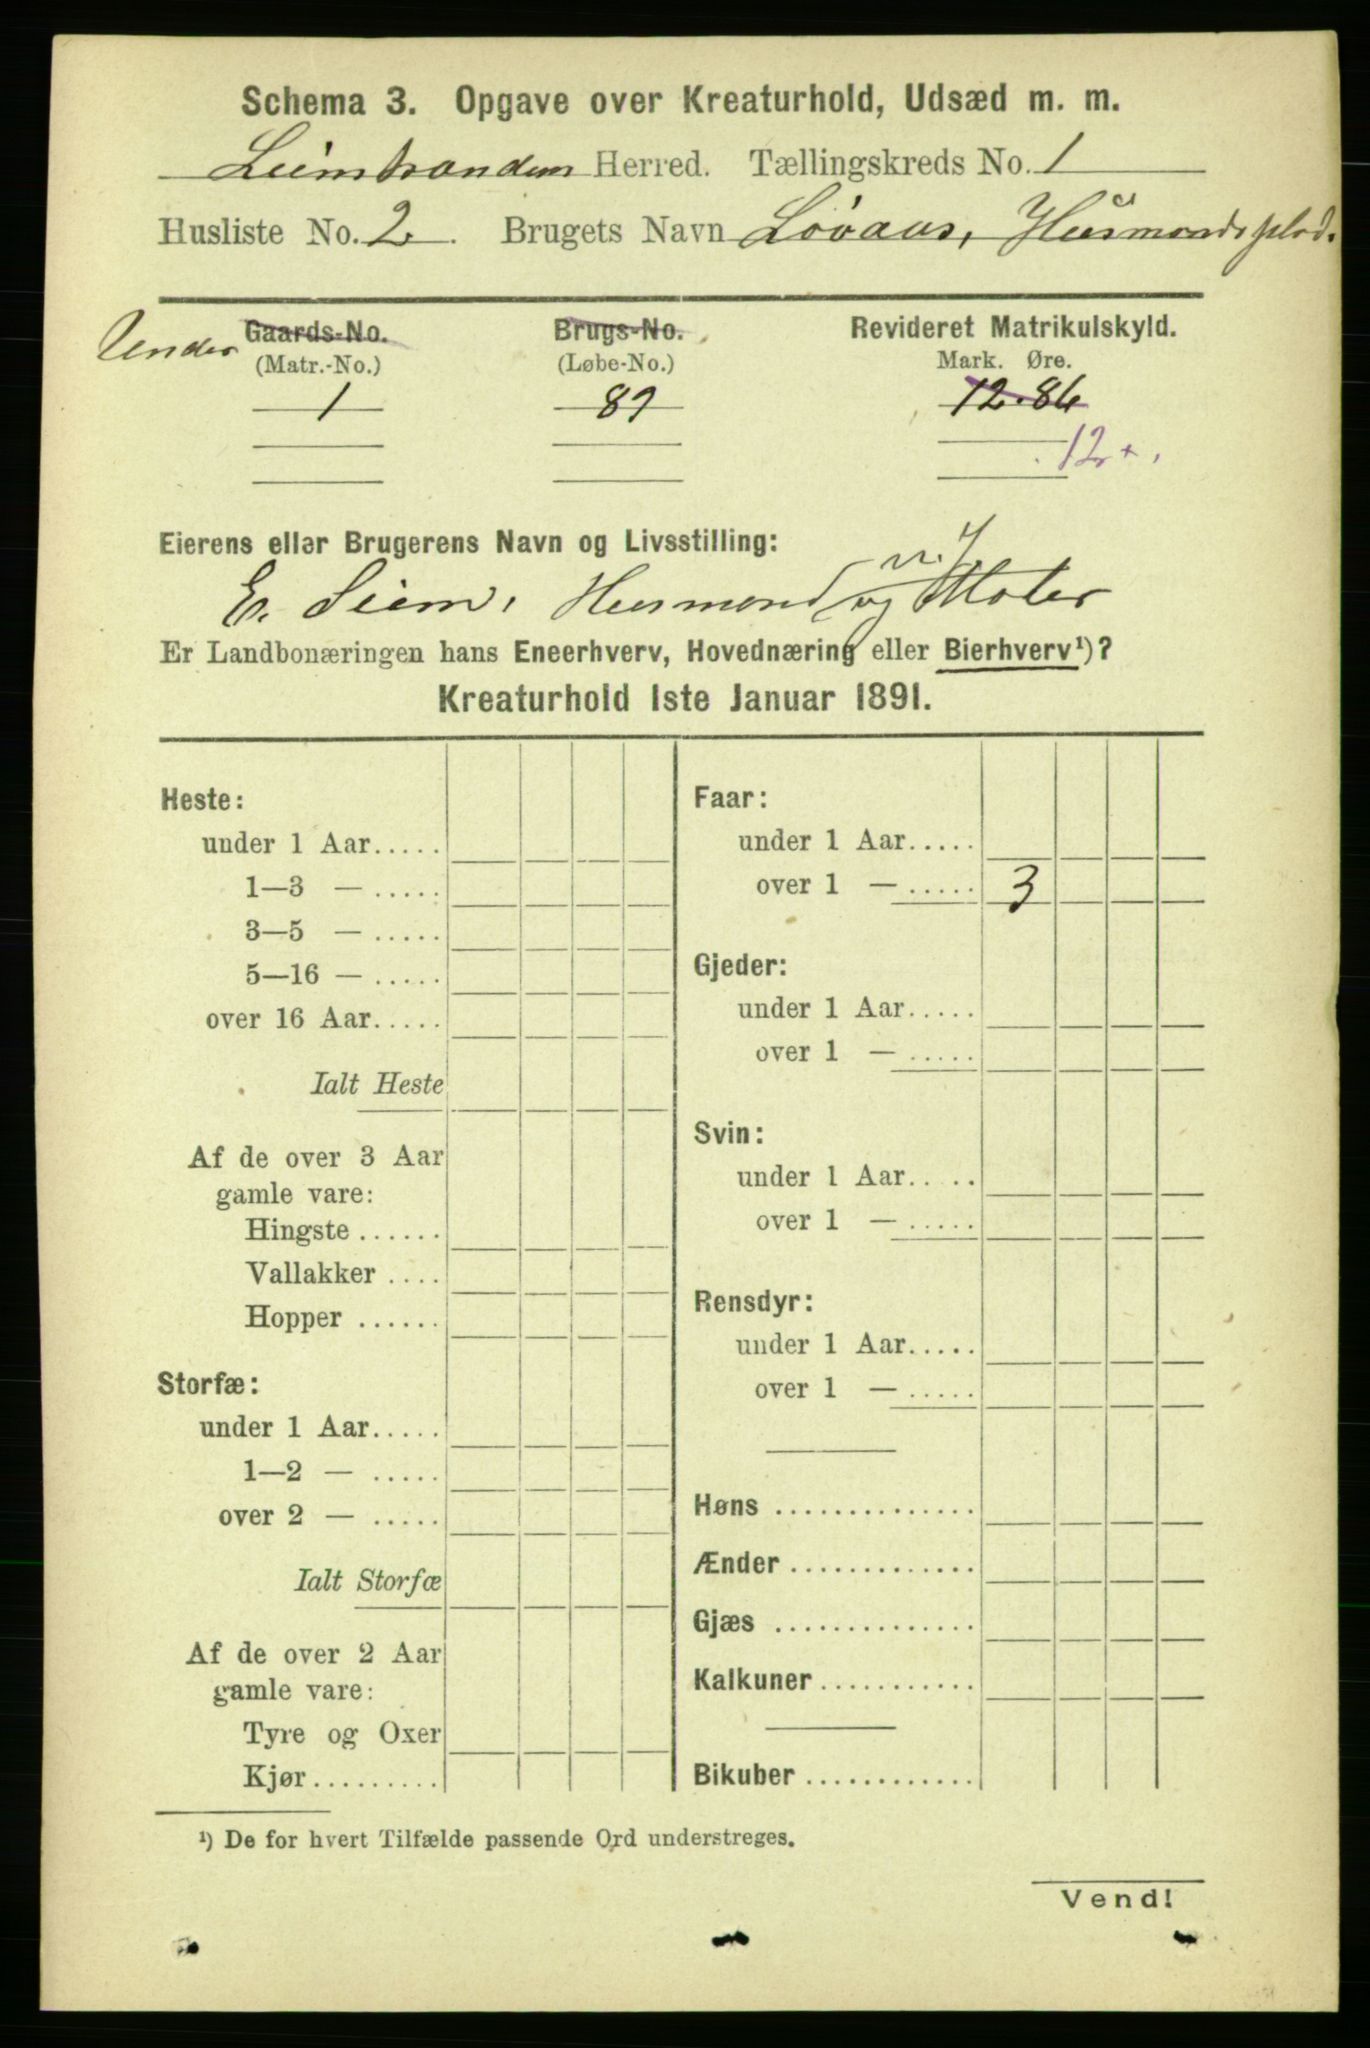 Schema 3. Opgave over Kreaturhold, Udsæd m. m.
Leinstranden Herred. Tællingskreds No. 1
Husliste No. 2. Brugets Navn Løvaas, Husmandsplds.
Under Gaards-No. Brugs-No. Revideret Matrikulskyld.
(Matr.-No.) (Løbe-No.) Mark. Øre.
1 89 12.86
12+.
Eierens eller Brugerens Navn og Livsstilling:
E. Siem, Husmand og Maler
Er Landbonæringen hans Eneerhverv, Hovednæring eller Bierhverv¹)?
Kreaturhold 1ste Januar 1891.
Heste:
under 1 Aar.....
1—3 — .....
3—5 — .....
5—16 — .....
over 16 Aar.....
Ialt Heste
Af de over 3 Aar
gamle vare:
Hingste ......
Vallakker ....
Hopper ......
Storfæ:
under 1 Aar.....
1—2 — .....
over 2 — .....
Ialt Storfæ
Af de over 2 Aar
gamle vare:
Tyre og Oxer
Kjør.........
Faar:
under 1 Aar.....
over 1 — ..... 3
Gjeder:
under 1 Aar.....
over 1 — .....
Svin:
under 1 Aar.....
over 1 — .....
Rensdyr:
under 1 Aar.....
over 1 — .....
Høns ..............
Ænder .............
Gjæs ..............
Kalkuner ...........
Bikuber ............
¹) De for hvert Tilfælde passende Ord understreges.
Vend!